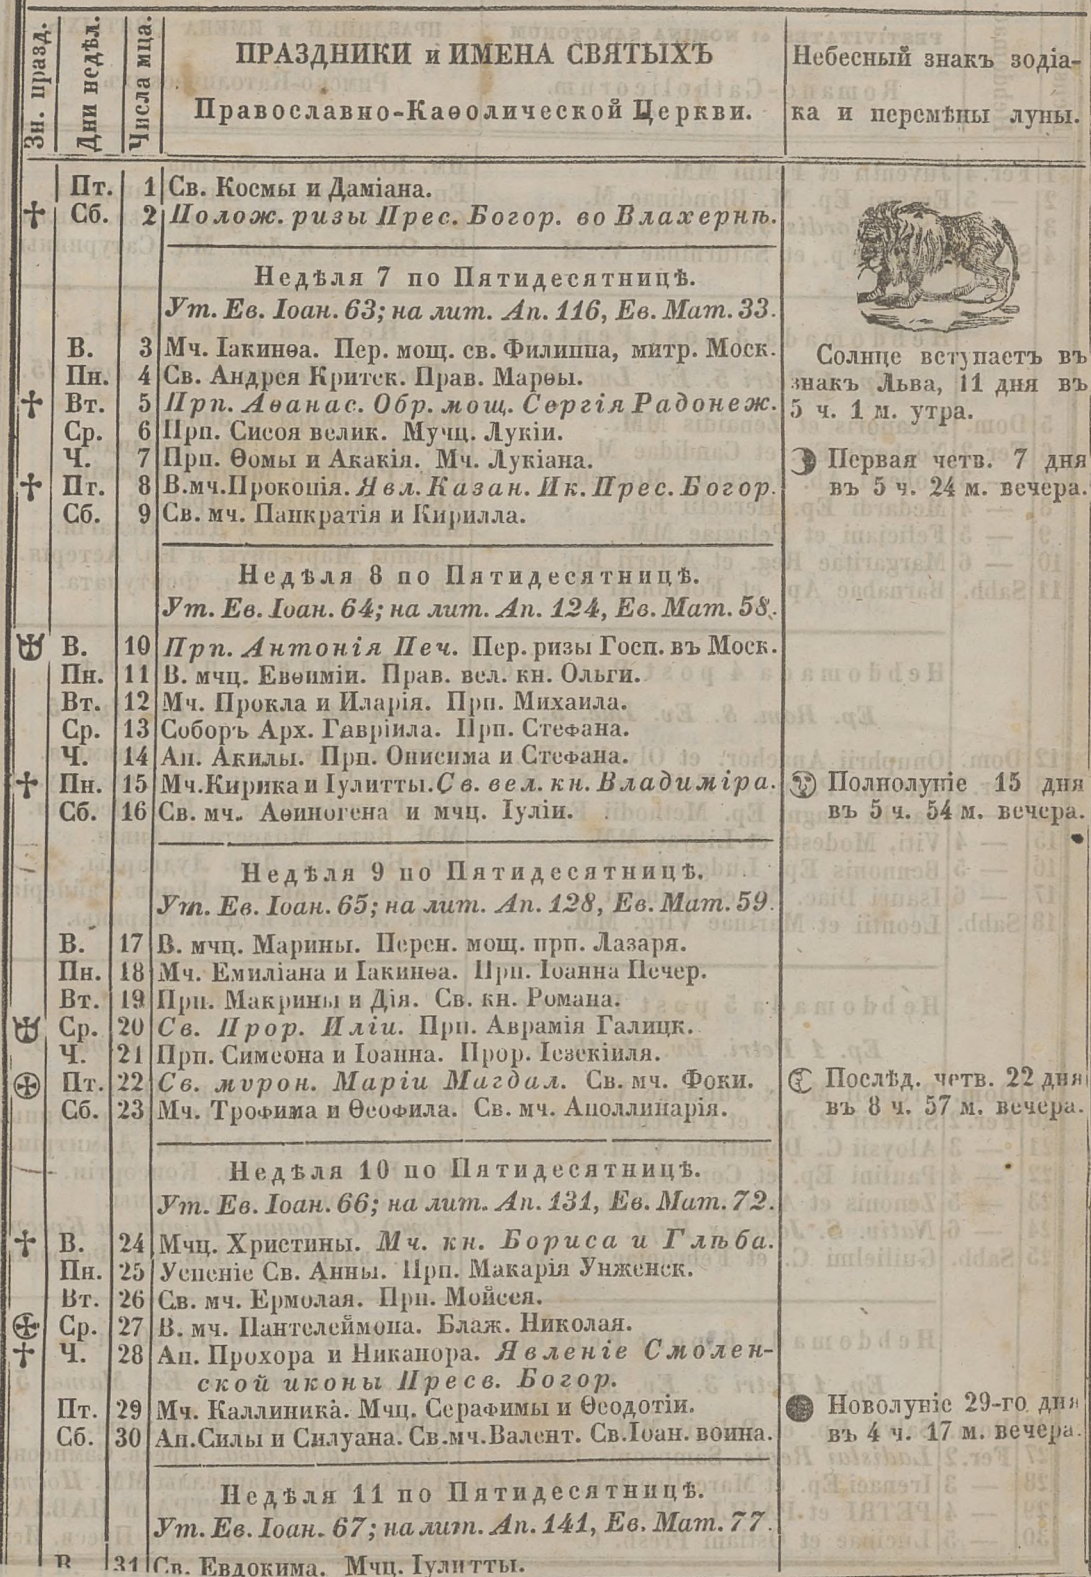 Зн. празд.
Дни недѣл.
Числа мца.
ПРАЗДНИКИ и ИМЕНА СВЯТЫХЪ
Православно-Каѳолической Церкви.
Небесный знакъ зодіа-
ка и перемѣны луны.
Пт. 1 Св. Космы и Даміана.
Сб. 2 Полож. ризы Прес. Богор. во Влахернѣ.
Недѣля 7 по Пятидесятницѣ.
Ут. Ев. Іоан. 63; на лит. Ап. 116, Ев. Мат. 33.
В. 3 Мч. Іакинѳа. Пер. мощ. св. Филиппа, митр. Моск.
Пн. 4 Св. Андрея Критск. Прав. Марѳы.
Вт. 5 Прп. Аѳанас. Обр. мощ. Сергія Радонеж.
Ср. 6 Прп. Сисоя велик. Мучц. Лукіи.
Ч. 7 Прп. Ѳомы и Акакія. Мч. Лукіана.
Пт. 8 В.мч.Прокопія. Явл. Казан. Ик. Прес. Богор.
Сб. 9 Св. мч. Панкратія и Кирилла.
Недѣля 8 по Пятидесятницѣ.
Ут. Ев. Іоан. 64; на лит. Ап. 124, Ев. Мат. 58.
В. 10 Прп. Антонія Печ. Пер. ризы Госп. въ Моск.
Пн. 11 В. мчц. Евѳиміи. Прав. вел. кн. Ольги.
Вт. 12 Мч. Прокла и Иларія. Прп. Михаила.
Ср. 13 Соборъ Арх. Гавріила. Прп. Стефана.
Ч. 14 Ап. Акилы. Прп. Онисима и Стефана.
Пн. 15 Мч.Кирика и Іулитты. Св. вел. кн. Владиміра.
Сб. 16 Св. мч. Аѳиногена и мчц. Іуліи.
Недѣля 9 по Пятидесятницѣ.
Ут. Ев. Іоан. 65; на лит. Ап. 128, Ев. Мат. 59.
В. 17 В. мчц. Марины. Перен. мощ. прп. Лазаря.
Пн. 18 Мч. Емиліана и Іакинѳа. Прп. Іоанна Печер.
Вт. 19 Прп. Макрины и Дія. Св. кн. Романа.
Ср. 20 Св. Прор. Иліи. Прп. Аврамія Галицк.
Ч. 21 Прп. Симеона и Іоанна. Прор. Іезекіиля.
Пт. 22 Св. мѵрон. Маріи Магдал. Св. мч. Фоки.
Сб. 23 Мч. Трофима и Ѳеофила. Св. мч. Аполлинарія.
Недѣля 10 по Пятидесятницѣ.
Ут. Ев. Іоан. 66; на лит. Ап. 131, Ев. Мат. 72.
В. 24 Мчц. Христины. Мч. кн. Бориса и Глѣба.
Пн. 25 Успеніе Св. Анны. Прп. Макарія Унженск.
Вт. 26 Св. мч. Ермолая. Прп. Мойсея.
Ср. 27 В. мч. Пантелеймона. Блаж. Николая.
Ч. 28 Ап. Прохора и Никанора. Явленіе Смолен-
ской иконы Пресв. Богор.
Пт. 29 Мч. Каллиника. Мчц. Серафимы и Ѳеодотіи.
Сб. 30 Ап.Силы и Силуана. Св.мч.Валент. Св.Іоан. воина.
Недѣля 11 по Пятидесятницѣ.
Ут. Ев. Іоан. 67; на лит. Ап. 141, Ев. Мат. 77.
В. 31 Св. Евдокима. Мчц. Іулитты.
Солнце вступаетъ въ
знакъ Льва, 11 дня въ
5 ч. 1 м. утра.
Первая четв. 7 дня
въ 5 ч. 24 м. вечера.
Полнолуніе 15 дня
въ 5 ч. 54 м. вечера.
Послѣд. четв. 22 дня
въ 8 ч. 57 м. вечера.
Новолуніе 29-го дня
въ 4 ч. 17 м. вечера.